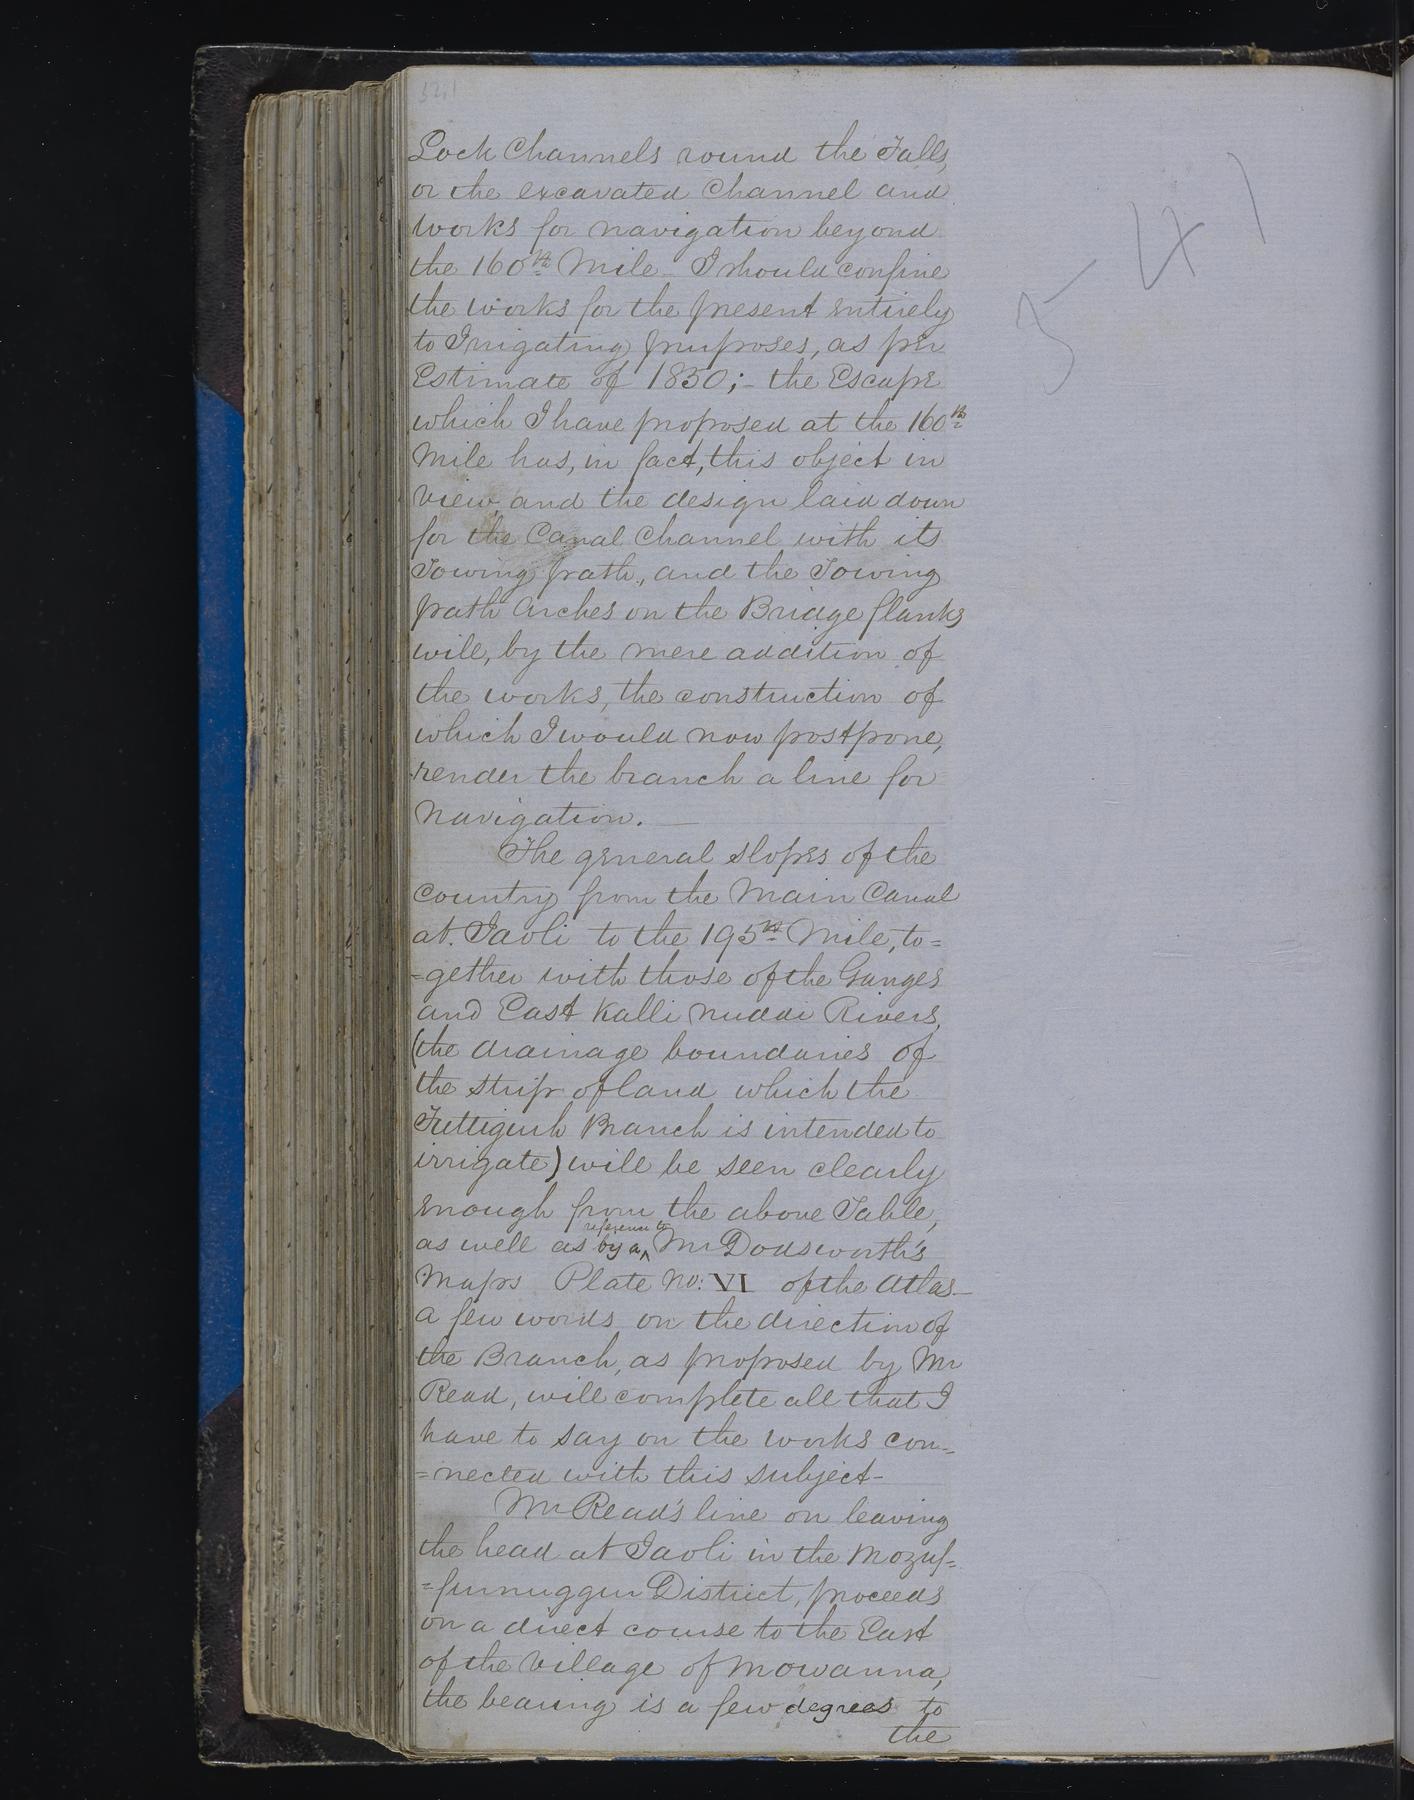 541
Lock Channels round the Falls,
or the excavated Channel and
works for navigation beyond
the 160th Mile _ I should confine
the works for the present entirely
to Irrigating purposes, as per
Estimate of 1850; - the Escape
which I have proposed at the 160th
Mile has, in fact, this object in
view, and the design laid down
for the Canal Channel with its
Towing path, and the Towing
path Arches on the Bridge flanks
will, by the mere addition of
the works, the construction of
which I would now postpone,
render the branch a line for
navigation. _
The general slopes of the
country from the Main Canal
at Jaoli to the 195th Mile, to=
=gether with those of the Ganges
and East Kalli Nuddi Rivers,
(the drainage boundaries of
the strip of land which the
Futtigurh Branch is intended to
irrigate) will be seen clearly
enough from the above Table,
reference to
as well as by a ^ Mr Dodsworth's
Maps Plate No: VI of the Atlas _
a few words on the direction of
the Branch, as proposed by Mr
Read, will complete all that I
have to say on the works con=
=nected with this subject -
Mr Read's line on leaving
the head at Jaoli in the Mozuf=
=furnuggur District, proceeds
on a direct course to the East
of the Village of Mowanna,
the bearing is a few degrees to
the